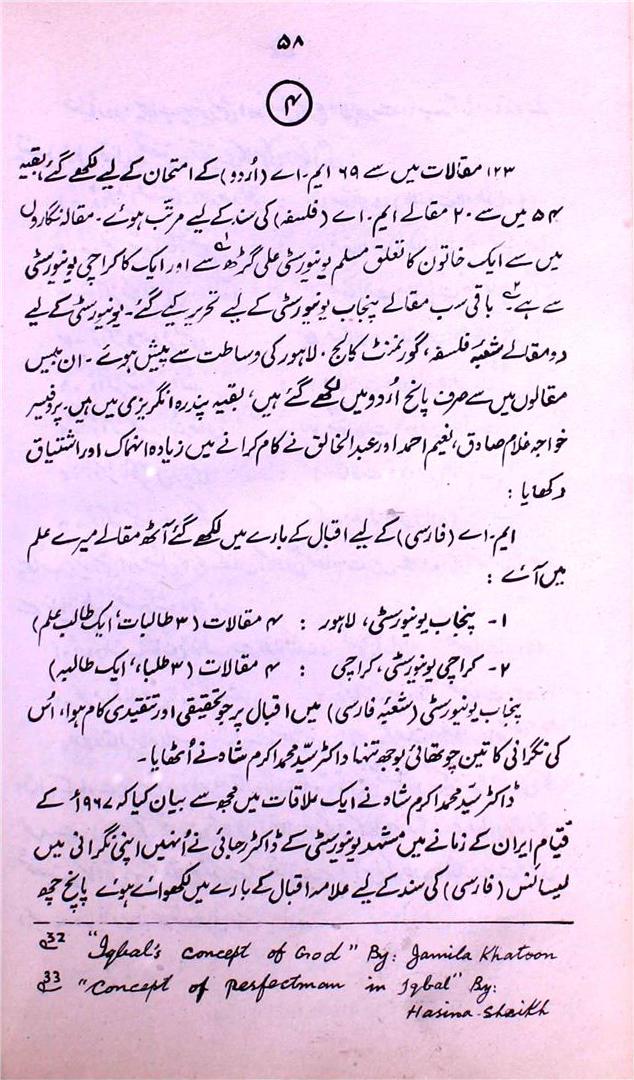 ۵۸
۴
۱۲۳ مقالات میں سے ۶۹ ایم۔اے (اُردو) کے امتحان کے لیے لکھے گئے، بقیہ
۵۴ میں سے ۲۰ مقالے ایم۔ اے (فلسفہ) کی سند کے لیے مرتّب ہوئے۔ مقالہ نگاروں
میں سے ایک خاتون کا تعلق مسلم یونیورسٹی علی گڑھ سے اور ایک کا کراچی یونیورسٹی
سے ہے۔ باقی سب مقالے پنجاب یونیورسٹی کے لیے تحریر کیے گئے۔ یونیورسٹی کے لیے
دو مقالے شعبۂ فلسفہ، گورنمنٹ کالج، لاہور کی وساطت سے پیش ہوئے۔ ان بیس
مقالوں میں سے صرف پانچ اُردو میں لکھے گئے ہیں، بقیہ پندرہ انگریزی میں ہیں۔ پروفیسر
خواجہ غلام صادق، نعیم احمد اور عبدالخالق نے کام کرانے میں زیادہ انہماک اور اشتیاق
دکھایا :
ایم۔اے (فارسی) کے لیے اقبال کے بارے میں لکھے گئے آٹھ مقالے میرے علم
میں آئے :
۱۔ پنجاب یونیورسٹی، لاہور : ۴ مقالات (۳ طالبات، ایک طالب علم)
۲۔ کراچی یونیورسٹی، کراچی : ۴ مقالات (۳ طلبا، ایک طالبہ)
پنجاب یونیورسٹی (شعبۂ فارسی) میں اقبال پر جو تحقیقی اور تنقیدی کام ہوا، اُس
کی نگرانی کا تین چوتھائی بوجھ تنہا ڈاکٹر سیّد محمد اکرم شاہ نے اُٹھایا۔
ڈاکٹر سیّد محمد اکرم شاہ نے ایک ملاقات میں مجھ سے بیان کیا کہ ۱۹۶۷ء کے
قیامِ ایران کے زمانے میں مشہد یونیورسٹی کے ڈاکٹر رجائی نے اُنہیں اپنی نگرانی میں
لیسانس (فارسی) کی سند کے لیے علامہ اقبال کے بارے میں لکھوائے ہوئے پانچ چھ
32 "Iqbal's concept of God" By: Jamila Khatoon
33 "concept of perfectman in Iqbal" By:
Hasina Shaikh